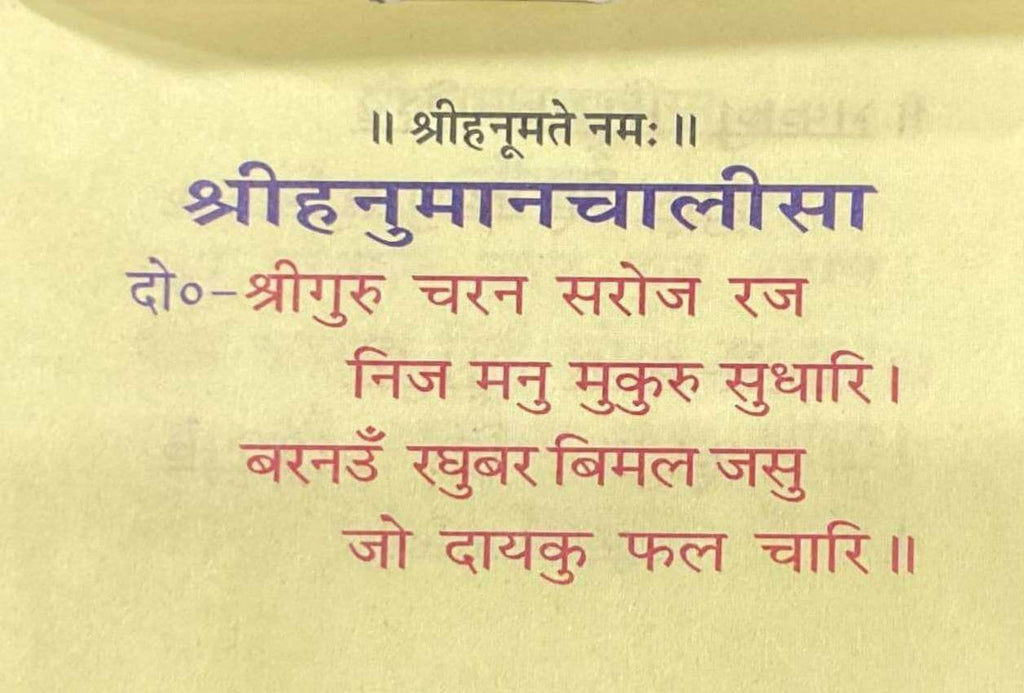 ॥ श्रीहनूमते नमः ॥
श्रीहनुमानचालीसा
दो०–श्रीगुरु चरन सरोज रज
निज मनु मुकुरु सुधारि।
बरनउँ रघुबर बिमल जसु
जो दायकु फल चारि॥